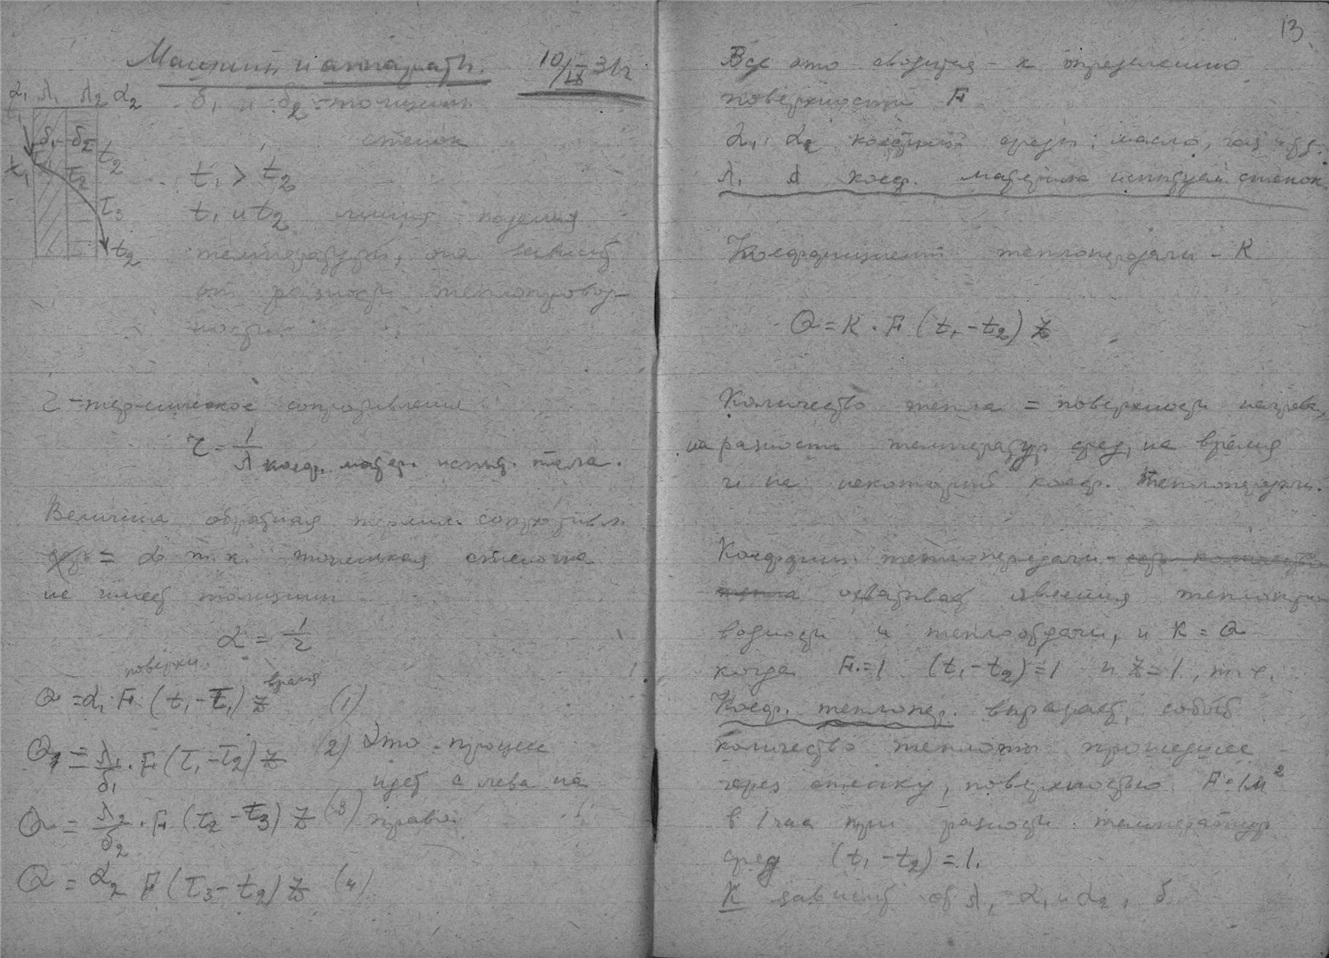 Машины и аппараты. 10/IX 31г
α₁ λ₁ λ₂ α₂
δ₁ и δ₂ - толщины
стенок
t₁ > t₂
t₁ и t₂ линия падения
температуры, она зависит
от разности теплопровод-
ности
τ - термическое сопротивление
τ = 1/λ коэф. матер. испыт. тела.
Величина обратная термич. сопротивл.
= α т.к. тоненькая стеночка
не имеет толщины
α = 1/τ
поверхн. время
Q = α₁ F (t₁ - τ₁) z (1)
Q₁ = λ₁/δ₁ · F (τ₁ - τ₂) z (2) Это процесс
идет с лева на
Q = λ₂/δ₂ · F (τ₂ - τ₃) z (3) право
Q = α₂ F (τ₃ - t₂) z (4)
13.
Все это сводится - к определению
поверхности F
α₁ α₂ среды: масло,
λ₁ λ коэф. материала испытуем. стенок
Коэффициент теплопередачи - K
Q = K · F (t₁ - t₂) z
Количество тепла = поверхности нагрева,
на разность температур сред, на время
и на некоторый коэф. теплопередачи.
Коэффиц. теплопередачи - есть количество
тепла охватывает явления теплопро-
водности и теплоотдачи, и K = Q
когда F = 1 (t₁ - t₂) = 1 и z = 1, т.е.
Коэф. теплопер. выражает собой
количество теплоты прошедшее
через стенку, поверхностью F = 1м²
в 1 час при разности температур
сред (t₁ - t₂) = 1.
K зависит от λ, α₁ и α₂, δ